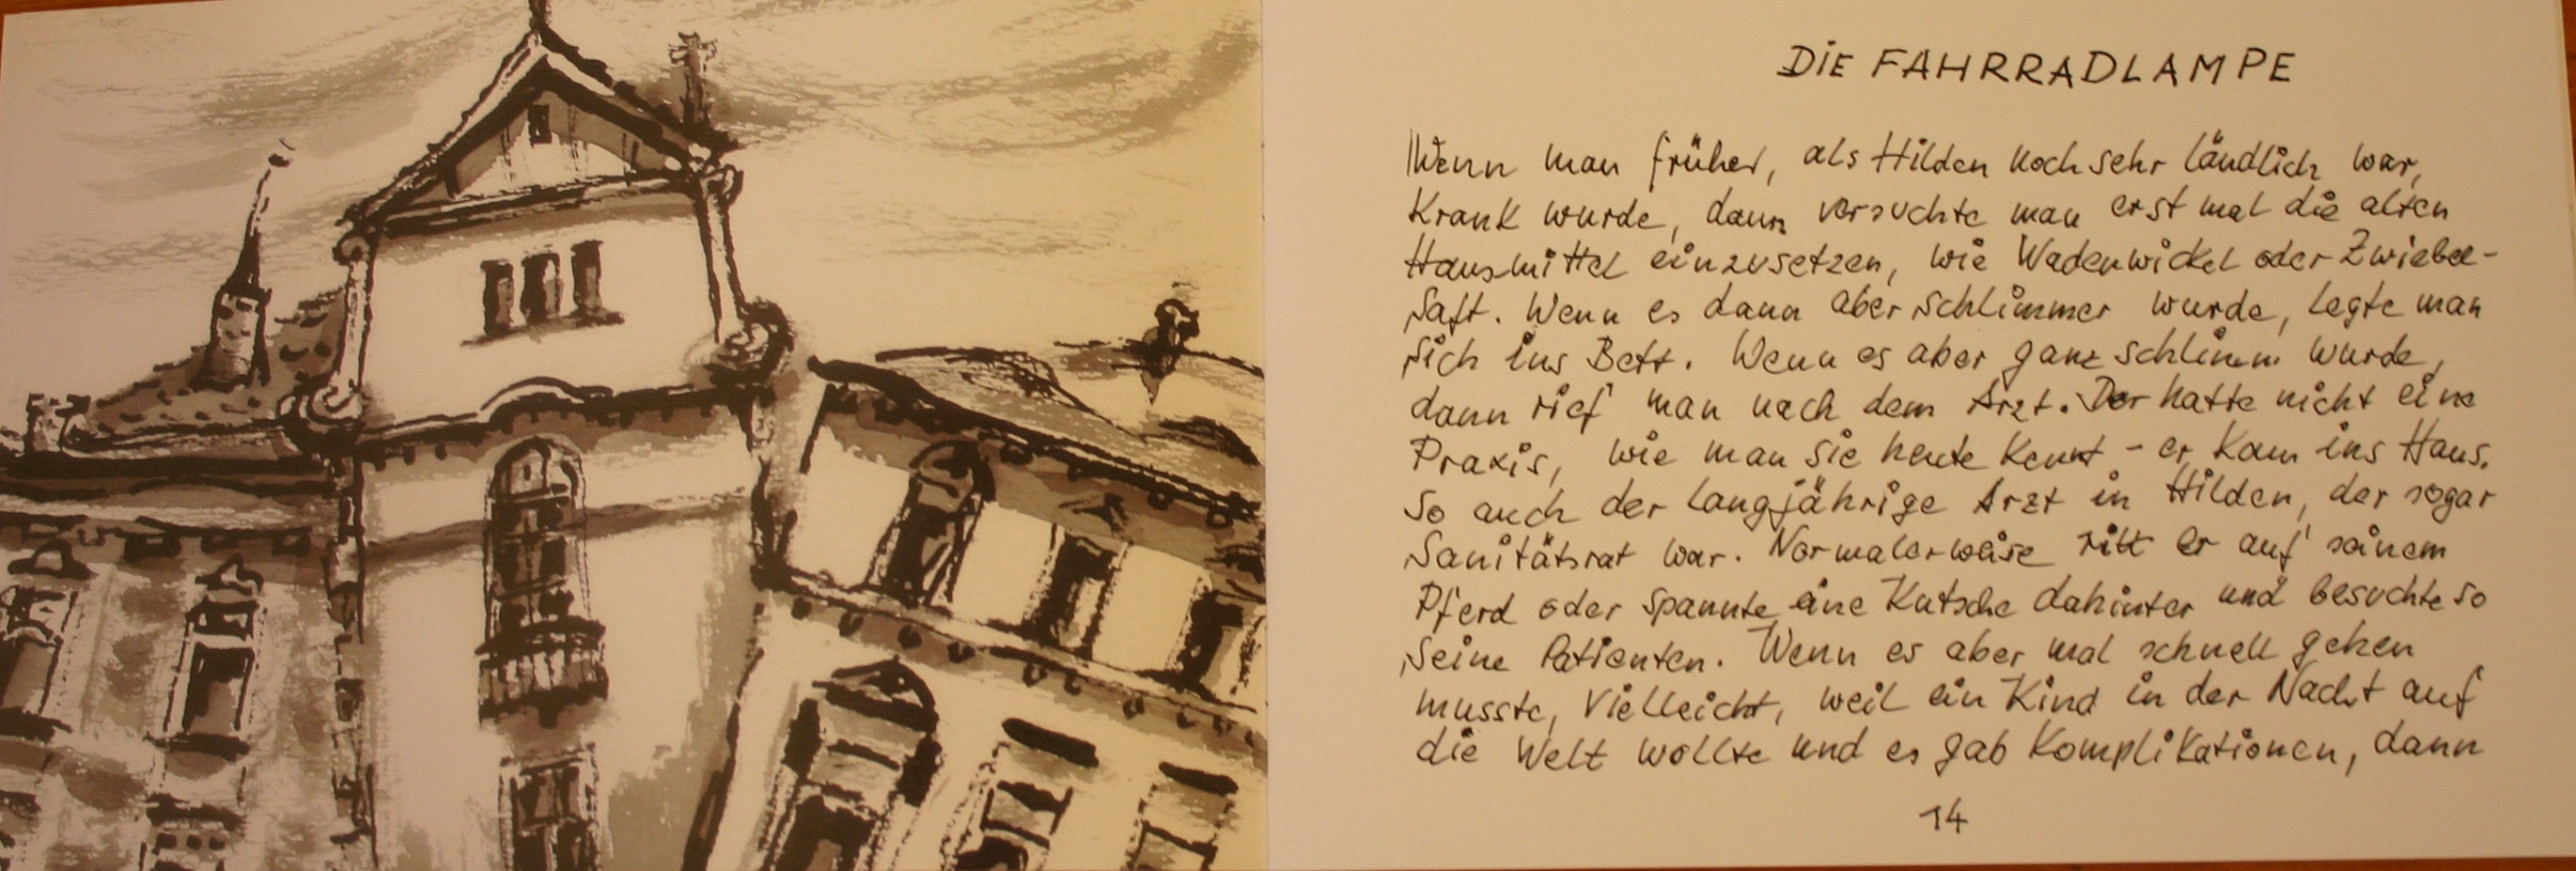 DIE FAHRRADLAMPE
Wenn man früher, als Hilden noch sehr ländlich war,
Krank wurde, dann versuchte man erst mal die alten
Hausmittel einzusetzen, wie Wadenwickel oder Zwiebel-
saft. Wenn es dann aber schlimmer wurde, legte man
sich ins Bett. Wenn es aber ganz schlimm wurde,
dann rief man nach dem Arzt. Der hatte nicht eine
Praxis, wie man sie heute Kennt - er kam ins Haus.
So auch der langjährige Arzt in Hilden, der sogar
Sanitätsrat war. Normalerweise ritt er auf seinem
Pferd oder spannte eine Kutsche dahinter und besuchte so
seine Patienten. Wenn es aber mal schnell gehen
musste, vielleicht, weil ein Kind in der Nacht auf
die Welt wollte und es gab Komplikationen, dann
14